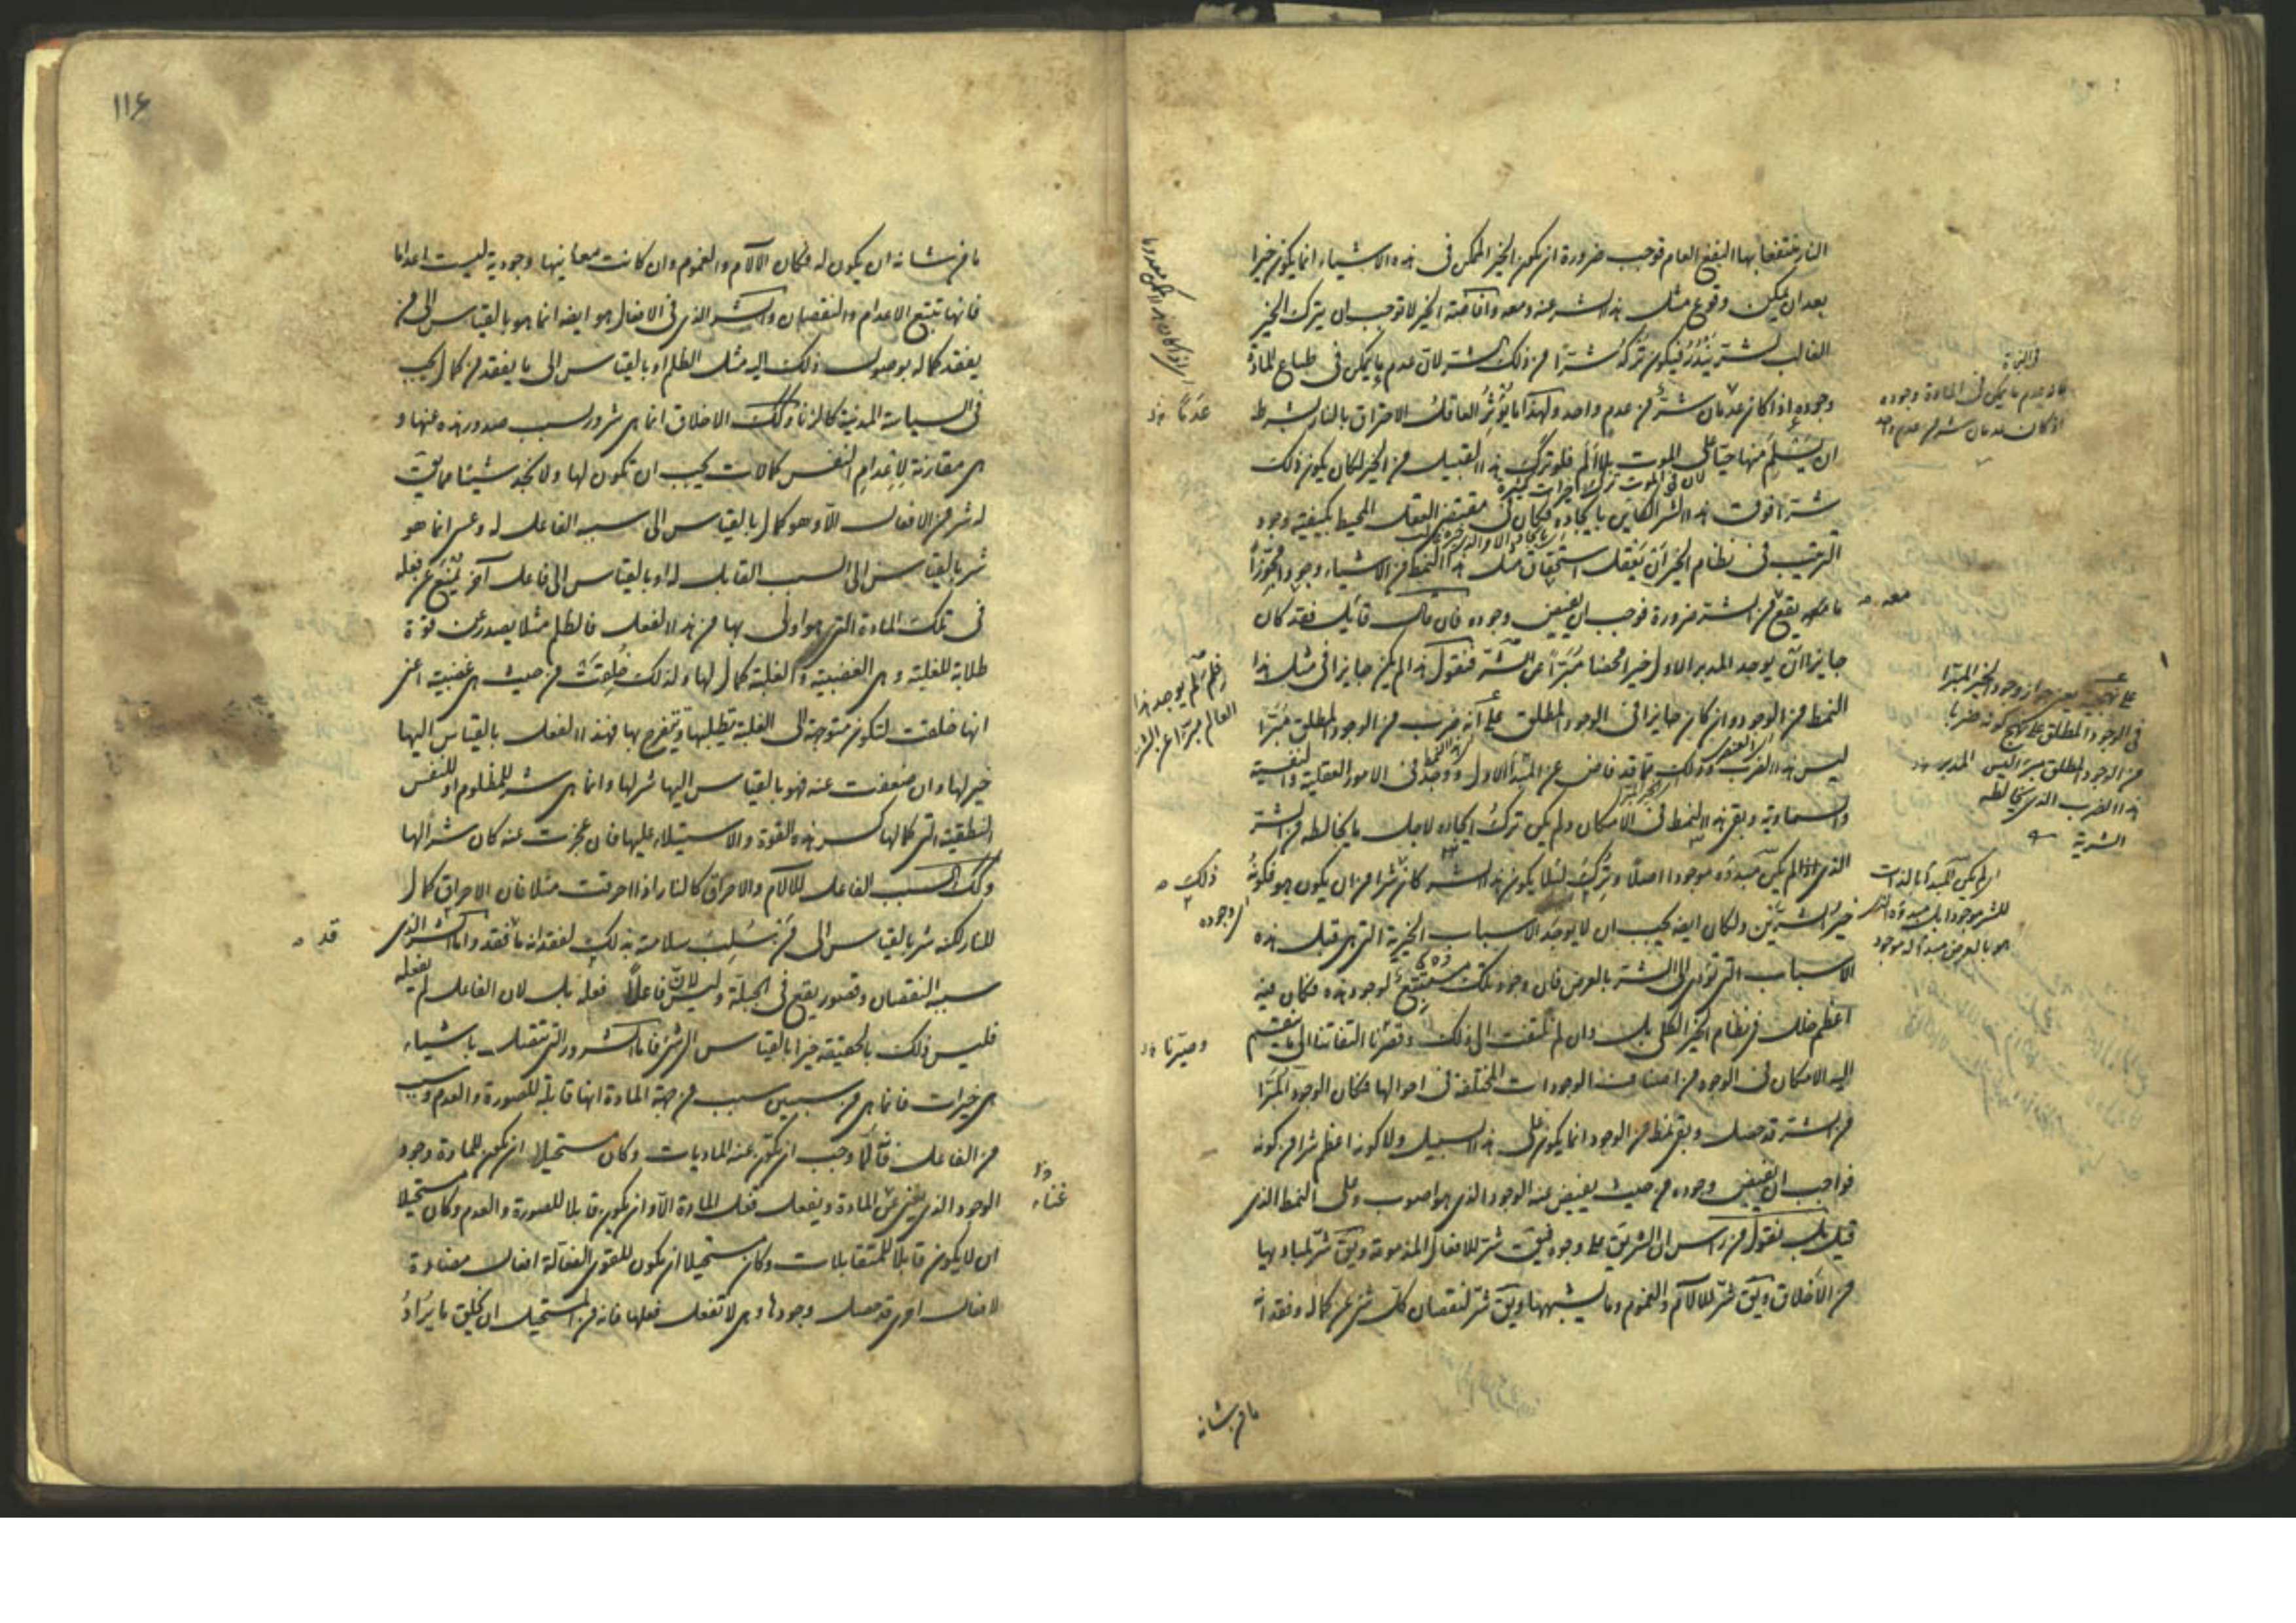 النار منتفعا بها النفع العام فوجب ضرورة ان يكون الخير الممكن فى هذه الاشياء انما يكون خيرا
بعد ان يمكن وقوع مثل هذا الشر عنه ومعه وافاضة الخير لا توجب ان يترك الخير
الغالب لشر يندر فيكون تركه شرا من ذلك الشر لان عدم ما يمكن فى طباع المادة
وجوده اذا كان عدمان شر من عدم واحد ولهذا ما يؤثر العاقل الاحتراق بالنار بشرط
ان يسلم منها حيا على الموت بلا الم فلو ترك هذا القبيل من الخير لكان يكون ذلك
لان فى الموت ترك خيرات كثيرة
شرا فوق هذا الشر الكاين بايجاده فكان فى مقتضى العقل المحيط بكيفية وجوب
الترتيب فى نظام الخير ان يعقل استحقاق مثل هذا النمط من الاشياء وجودا مجوزا
ما يقع من الشر ضرورة فوجب ان يفيض وجوده فان قال قايل فقد كان
جايزا ان يوجد المدبر الاول خيرا محضا مبرا عن الشر فنقول هذا لم يكن جايزا فى مثل هذا
النمط من الوجود وان كان جايزا فى الوجود المطلق على انه ضرب من الوجود المطلق مبرا
ليس هذا الضرب وذلك مما قد فاض عن المبدأ الاول ووجد فى الامور العقلية والنفسية
والسماوية وبقى هذا النمط فى الامكان ولم يكن ترك ايجاده لاجل ما يخالطه من الشر
الذى اذا لم يكن مبدؤه موجودا اصلا وترك لئلا يكون هذا الشر كان شرا من ان يكون هو فكونه
خير الشرين ولكان ايضا يجب ان لا يوجد الاسباب الخيرية التى هى قبل هذه
الاسباب التى تؤدى الى الشر بالعرض فان وجود تلك مستتبع لوجود هذه فكان فيه
اعظم خلل فى نظام الخير الكلى بل وان لم نلتفت الى ذلك وقصرنا التفاتنا الى ما ينقسم
اليه الامكان فى الوجود من اصناف الوجودات المختلفة فى احوالها فكان الوجود المبرا
من الشر قد حصل وبقى نمط من الوجود انما يكون على هذا السبيل ولا كونه اعظم شرا من كونه
فواجب ان يفيض وجوده من حيث يفيض عنه الوجود الذى هو اصوب وعلى النمط الذى
قيل بل نقول من راس ان الشر يق على وجوه فيق شر للافعال المذمومة ويق شر لمباديها
من الاخلاق ويق شر للالام والغموم وما يشبهها ويق شر لنقصان كل شى عن كماله وفقدانه
ما من شانه
فى النجاة
فان عدم ما يمكن فى المادة وجوده
اذا كان عدمان شر من عدم واحد
عدما
معه
فلم لم يوجد هذا
العالم مبرا عن الشر
فى الوجود المطلق على نهج كونه ضربا
من الوجود المطلق مبرا ليس المدبر
هذا الضرب الذى يخالطه
الشرية
ذلك
اى وجوده
اى لم يكن المبدأ بالذات
للشر موجودا بل مبدؤه الذى
هو بالعرض مبدأ له موجود
وصيرنا
١١٤
ما من شانه ان يكون له فكان الالام والغموم وان كانت معانيها وجودية ليست اعداما
فانها تتبع الاعدام والنقصان والشر الذى فى الافعال هو ايضا انما هو بالقياس الى من
يفقد كماله بوصول ذلك اليه مثل الظلم او بالقياس الى ما يفقد من كمال يجب
فى السياسة المدنية كالزنا وكذلك الاخلاق انما هى شرور بسبب صدور هذه عنها و
هى مقارنة لاعدام النفس كمالات يجب ان تكون لها ولا نجد شيئا مما يق
له شر من الافعال الا وهو كمال بالقياس الى سببه الفاعل له وعسى انما هو
شر بالقياس الى السبب القابل له او بالقياس الى فاعل آخر يمنع عن فعله
فى تلك المادة التى هو اولى بها من هذا الفعل فالظلم مثلا يصدر عن قوة
طلابة للغلبة وهى الغضبية والغلبة كمال لها ولذلك خلقت من حيث هى غضبية اعنى
انها خلقت لتكون متوجهة الى الغلبة تطلبها وتفرح بها فهذا الفعل بالقياس اليها
خير لها وان ضعفت عنه فهو بالقياس اليها شر لها وانما هى شر للمظلوم او للنفس
النطقية التى كمالها كسر هذه القوة والاستيلاء عليها فان عجزت عنه كان شرا لها
وكذلك السبب الفاعل للالام والاحراق كالنار اذا احرقت مثلا فان الاحراق كمال
للنار لكنه شر بالقياس الى من سلب سلامته بذلك لفقدانه ما فقد واما الشر الذى
سببه النقصان وقصور يقع فى الجبلة وليس لان فاعلا فعله بل لان الفاعل لم يفعله
فليس ذلك بالحقيقة خيرا بالقياس الى شى فاما الشرور التى تتصل باشياء
هى خيرات فانما هى من سببين سبب من جهة المادة انها قابلة للصورة والعدم وسبب
من الفاعل فانه لما وجب ان يكون عنه الماديات وكان مستحيلا ان يكون للمادة وجود
الوجود الذى يغنى عن المادة ويفعل فعل المادة الا وان يكون قابلا للصورة والعدم وكان مستحيلا
ان لا يكون قابلا للمتقابلات وكان مستحيلا ان يكون للقوى الفعالة افعال مضادة
لافعال اخرى قد حصل وجودها وهى لا تفعل فعلها فانه من المستحيل ان يخلق ما يراد
قد
غناء